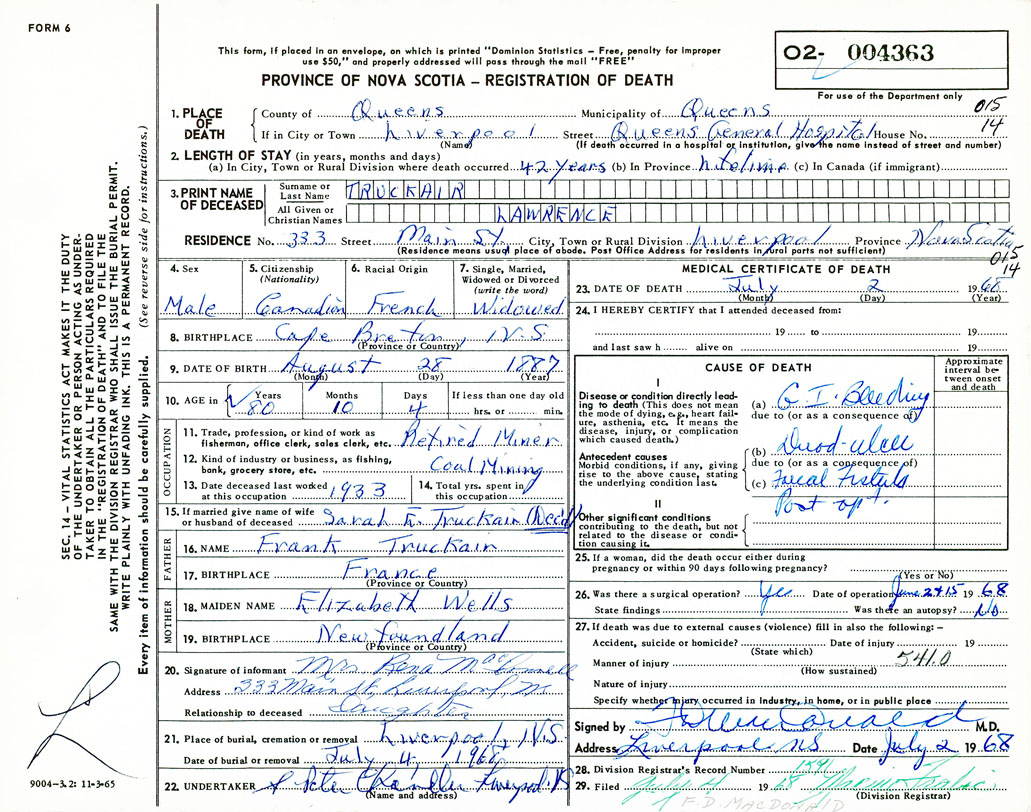 FORM 6
This form, if placed in an envelope, on which is printed "Dominion Statistics – Free, penalty for improper
use $50," and properly addressed will pass through the mail "FREE"
PROVINCE OF NOVA SCOTIA – REGISTRATION OF DEATH
02- 004363
For use of the Department only
015
14
1. PLACE OF DEATH
County of Queens Municipality of Queens
If in City or Town Liverpool Street Queens General Hospital House No.
(Name) (If death occurred in a hospital or institution, give the name instead of street and number)
2. LENGTH OF STAY (in years, months and days)
(a) In City, Town or Rural Division where death occurred 42 years (b) In Province lifetime (c) In Canada (if immigrant)
3. PRINT NAME OF DECEASED
Surname or Last Name TRUCKAIR
All Given or Christian Names LAWRENCE
RESIDENCE No. 333 Street Main St. City, Town or Rural Division Liverpool Province Nova Scotia
(Residence means usual place of abode. Post Office Address for residents in rural parts not sufficient)
015
14
4. Sex Male
5. Citizenship (Nationality) Canadian
6. Racial Origin French
7. Single, Married, Widowed or Divorced (write the word) Widowed
8. BIRTHPLACE Cape Breton, N.S.
(Province or Country)
9. DATE OF BIRTH August 28 1887
(Month) (Day) (Year)
10. AGE in Years 80 Months 10 Days 4 If less than one day old hrs. or min.
OCCUPATION
11. Trade, profession, or kind of work as fisherman, office clerk, sales clerk, etc. Retired Miner
12. Kind of industry or business, as fishing, bank, grocery store, etc. Coal Mining
13. Date deceased last worked at this occupation 1933
14. Total yrs. spent in this occupation
15. If married give name of wife or husband of deceased Sarah E. Truckair (Dec'd)
FATHER
16. NAME Frank Truckair
17. BIRTHPLACE France
(Province or Country)
MOTHER
18. MAIDEN NAME Elizabeth Wells
19. BIRTHPLACE Newfoundland
(Province or Country)
20. Signature of informant Mrs. Rena
Address 333 Main St., Liverpool, N.S.
Relationship to deceased Daughter
21. Place of burial, cremation or removal Liverpool, N.S.
Date of burial or removal July 4, 1968
22. UNDERTAKER Peter Chandler Liverpool NS
(Name and address)
MEDICAL CERTIFICATE OF DEATH
23. DATE OF DEATH July 2 1968
(Month) (Day) (Year)
24. I HEREBY CERTIFY that I attended deceased from:
19 to 19
and last saw h alive on 19
CAUSE OF DEATH
Approximate interval between onset and death
I
Disease or condition directly leading to death (This does not mean the mode of dying, e.g., heart failure, asthenia, etc. It means the disease, injury, or complication which caused death.)
(a) G.I. Bleeding
due to (or as a consequence of)
Antecedent causes
Morbid conditions, if any, giving rise to the above cause, stating the underlying condition last.
(b) Duod-ulcer
due to (or as a consequence of)
(c) Faecal Fistula
Post op
II
Other significant conditions
contributing to the death, but not related to the disease or condition causing it.
25. If a woman, did the death occur either during
pregnancy or within 90 days following pregnancy?
(Yes or No)
26. Was there a surgical operation? Yes Date of operation June 2 & 15 1968
State findings Was there an autopsy? No
27. If death was due to external causes (violence) fill in also the following: –
Accident, suicide or homicide? Date of injury 19
(State which)
541.0
Manner of injury
(How sustained)
Nature of injury
Specify whether injury occurred in industry, in home, or in public place
Signed by M.D.
Address Liverpool NS Date July 2 1968
28. Division Registrar's Record Number 1591
29. Filed July 4 1968
(Division Registrar)
F.D. MACDONALD
SEC. 14 – VITAL STATISTICS ACT MAKES IT THE DUTY
OF THE UNDERTAKER OR PERSON ACTING AS UNDER-
TAKER TO OBTAIN ALL THE PARTICULARS REQUIRED
IN THE "REGISTRATION OF DEATH" AND TO FILE THE
SAME WITH THE DIVISION REGISTRAR WHO SHALL ISSUE THE BURIAL PERMIT.
WRITE PLAINLY WITH UNFADING INK. THIS IS A PERMANENT RECORD.
Every item of information should be carefully supplied. (See reverse side for instructions.)
9004-3.2: 11-3-65